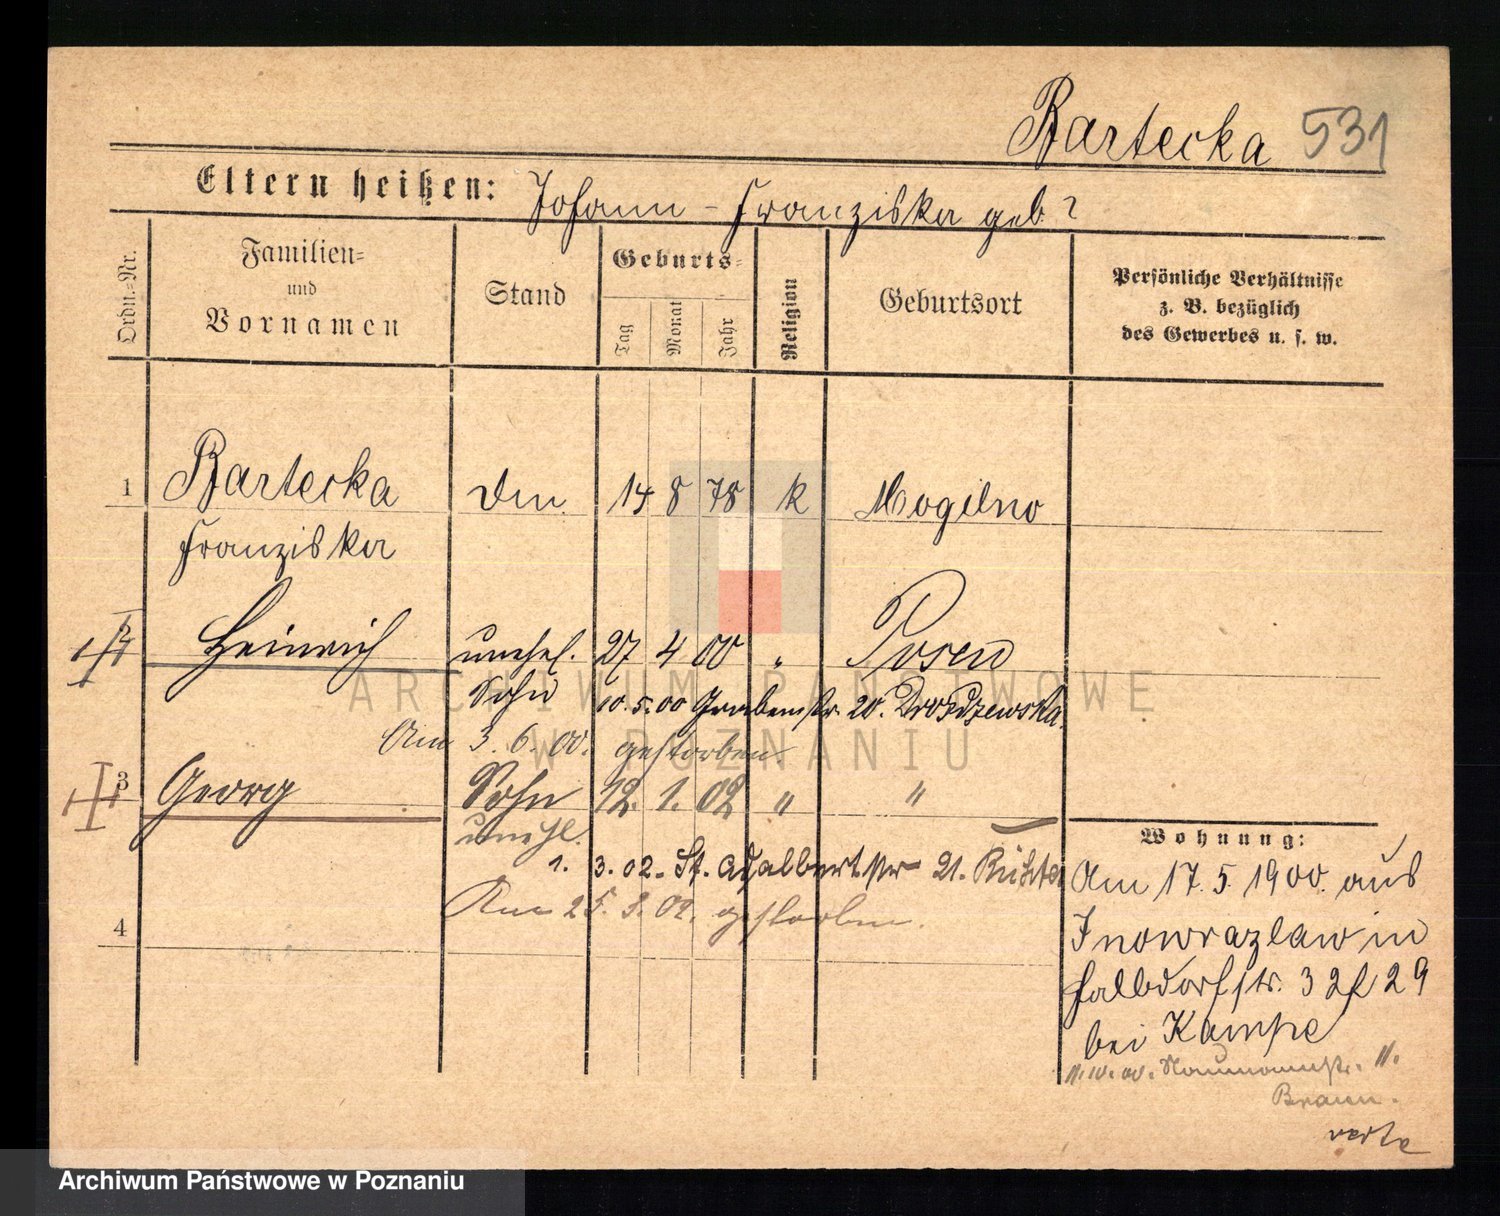 Bartecka 531
Eltern heißen: Johann - Franziska geb ?
Ordn.-Nr.
Familien-
und
Vornamen
Stand
Geburts-
Tag
Monat
Jahr
Religion
Geburtsort
Persönliche Verhältnisse
z. B. bezüglich
des Gewerbes u. s. w.
1 Bartecka 14 8 78 k Mogilno
Franziska
2 Heinrich unehel. 27 4 00 " Posen
Sohn 10.5.00 Grabenstr. 20. Drozdzewska.
Am 3.6.00. gestorben.
3 Georg Sohn 12. 1. 02 " "
unehl.
1. 3.02. St. Adalbertstr 21. Richter
Am 25.3.02. gestorben.
4
Wohnung:
Am 17.5.1900. aus
Inowrazlaw in
Halbdorfstr. 32 29
bei Kampe
11.10.00. Naumannstr. 11.
Braun.
verte
ARCHIWUM PAŃSTWOWE
W POZNANIU
Archiwum Państwowe w Poznaniu